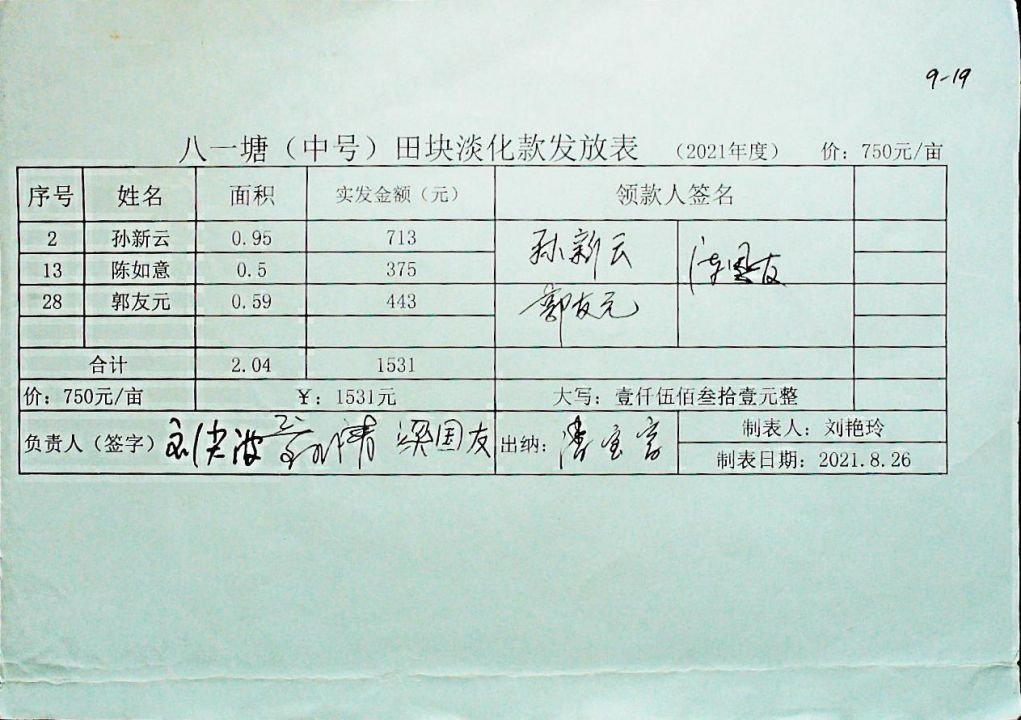 9-19
八一塘（中号）田块淡化款发放表 （2021年度） 价：750元/亩
序号 姓名 面积 实发金额（元） 领款人签名
2 孙新云 0.95 713 孙新云
13 陈如意 0.5 375
28 郭友元 0.59 443 郭友元
合计 2.04 1531
价：750元/亩 ¥：1531元 大写：壹仟伍佰叁拾壹元整
负责人（签字） 梁国友 出纳： 制表人：刘艳玲
制表日期：2021.8.26